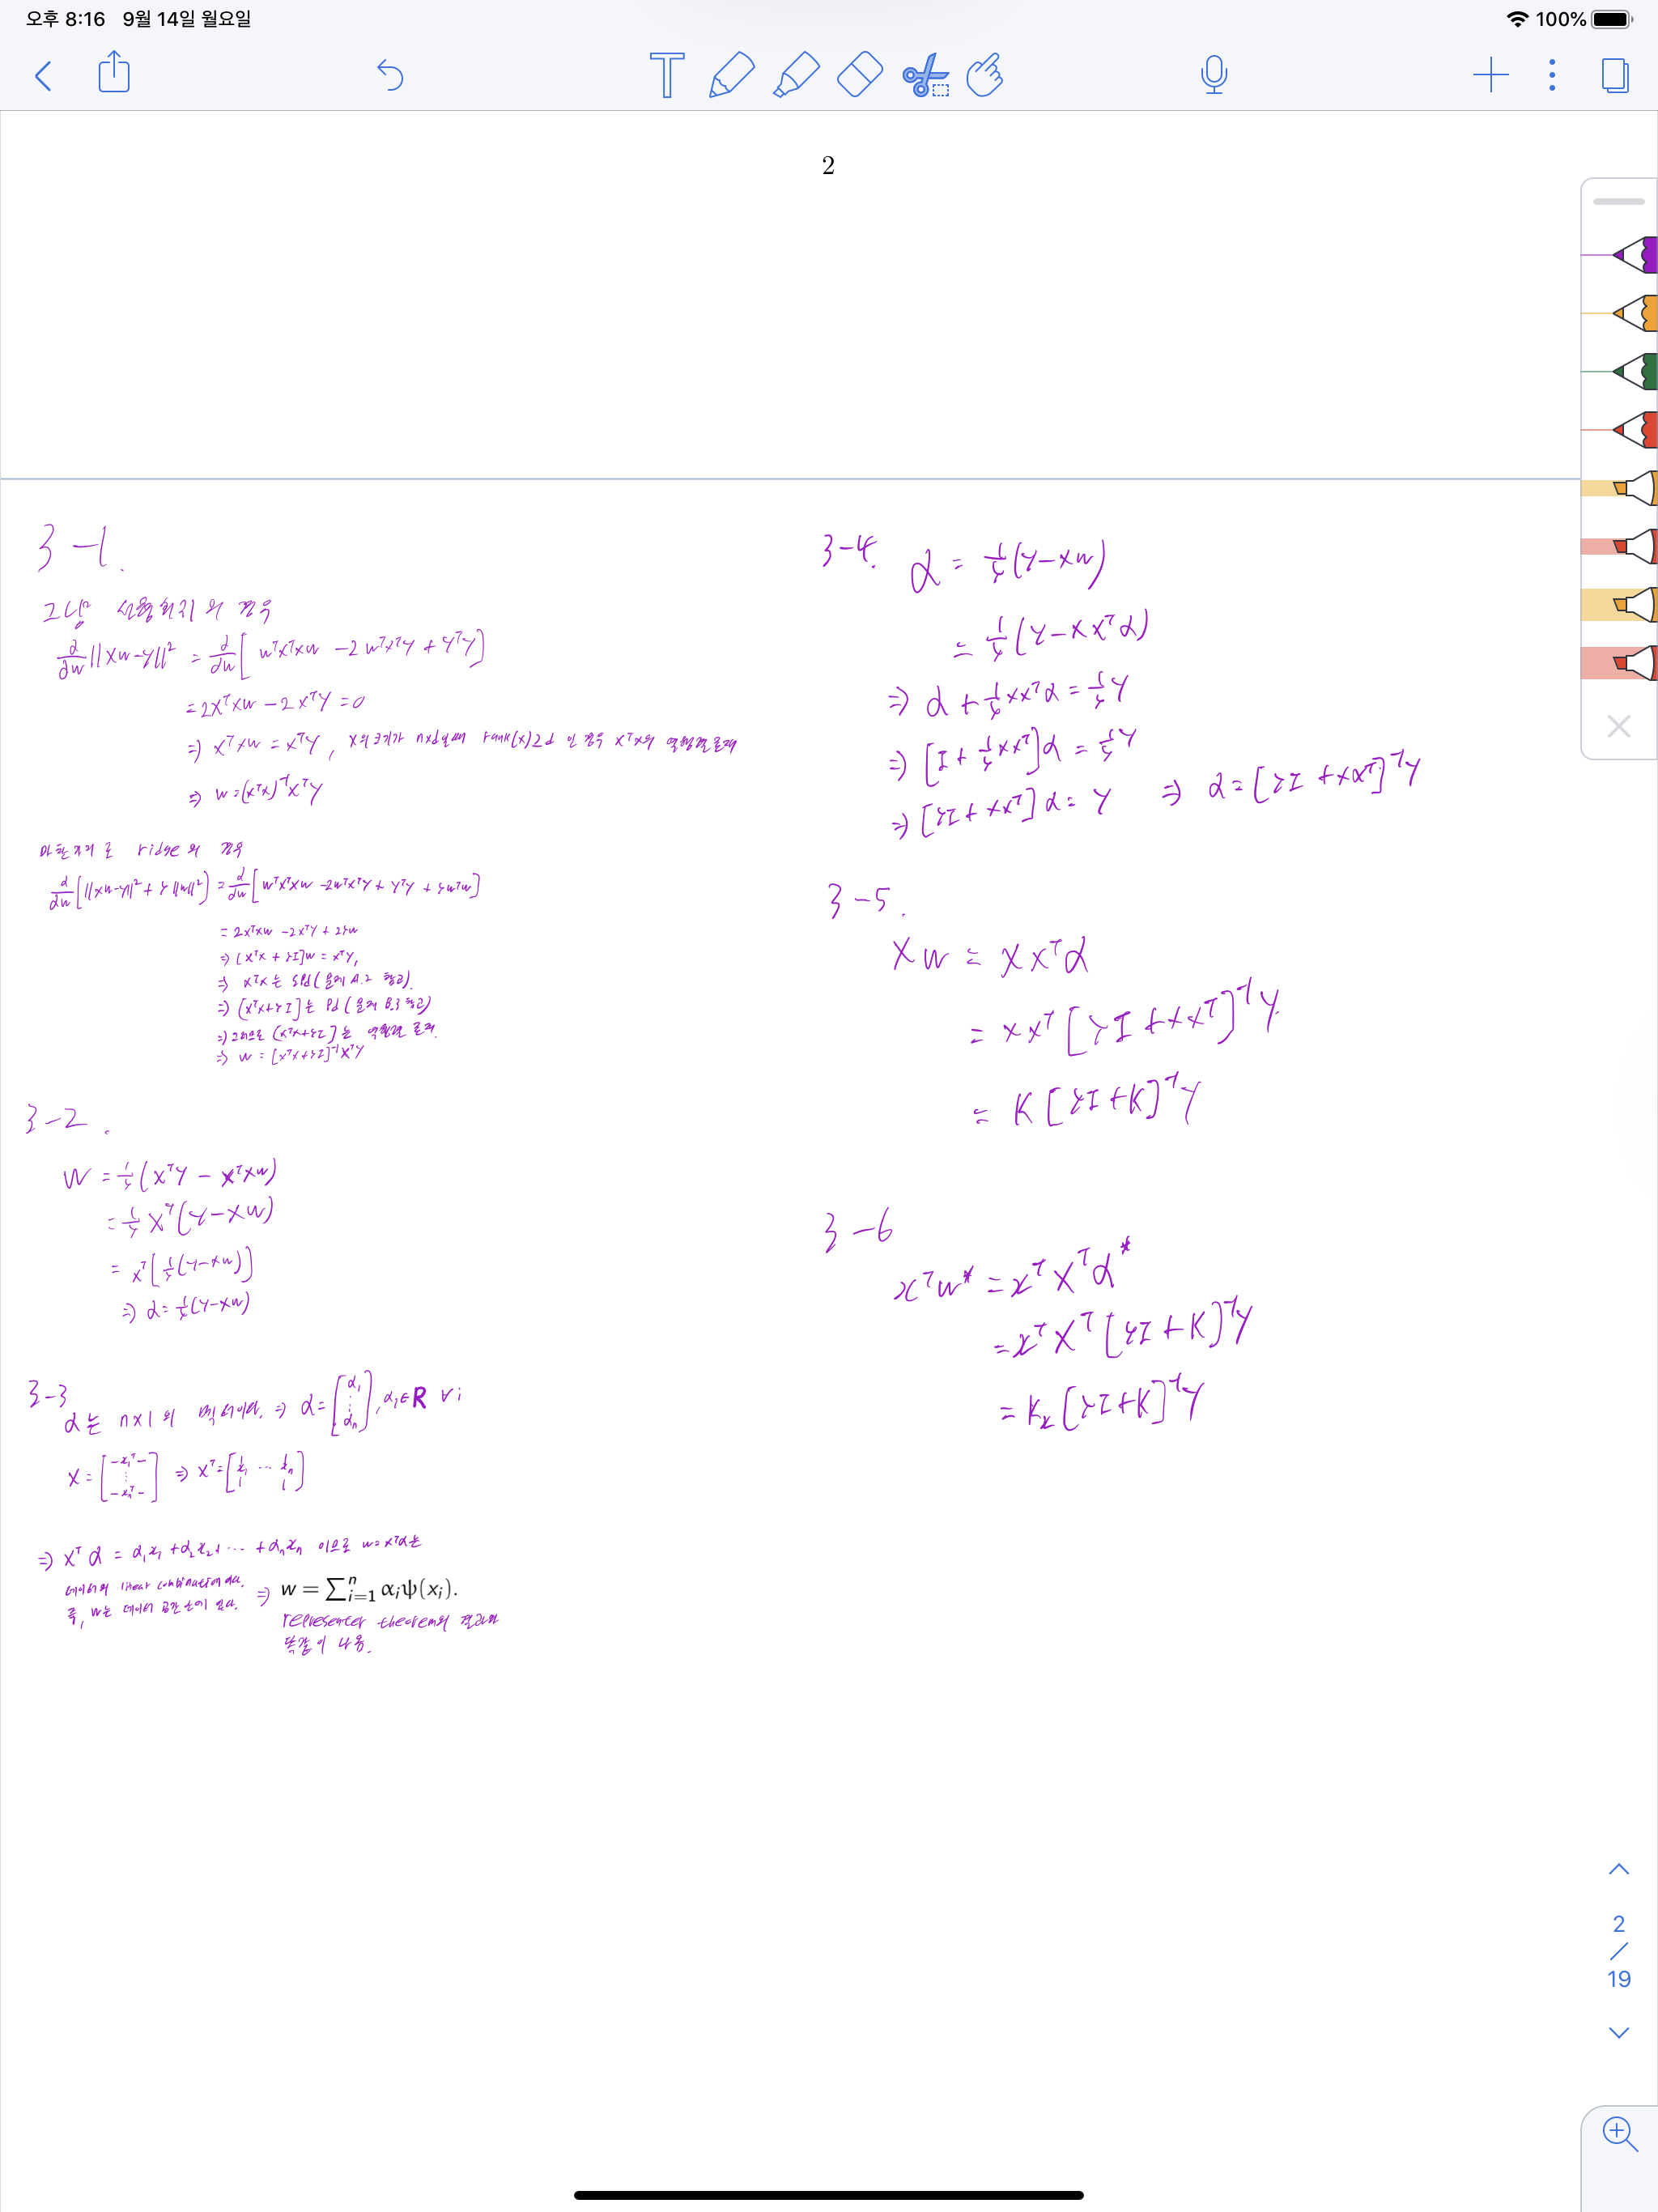 오후 8:16 9월 14일 월요일
100%
2
3-1.
그냥 선형회귀의 경우
∂/∂w ||Xw-y||² = ∂/∂w [wᵀXᵀXw - 2wᵀXᵀy + yᵀy]
= 2XᵀXw - 2XᵀY = 0
⇒ XᵀXw = XᵀY, X의 크기가 nxd일때 rank(X)≥d 인 경우 XᵀX의 역행렬 존재
⇒ w = (XᵀX)⁻¹XᵀY
마찬가지로 ridge의 경우
∂/∂w [||Xw-y||² + λ||w||²] = ∂/∂w [wᵀXᵀXw - 2wᵀXᵀY + YᵀY + λwᵀw]
= 2XᵀXw - 2XᵀY + 2λw
⇒ [XᵀX + λI]w = XᵀY,
⇒ XᵀX는 spd (문제 A.2 참고).
⇒ [XᵀX+λI]는 pd (문제 B.3 참고)
⇒ 그러므로 [XᵀX+λI]는 역행렬 존재.
⇒ w = [XᵀX+λI]⁻¹XᵀY
3-2.
W = 1/λ (XᵀY - XᵀXw)
= 1/λ Xᵀ(Y-Xw)
= Xᵀ[1/λ(Y-Xw)]
⇒ α = 1/λ(Y-Xw)
3-3
α는 nx1의 벡터이다. ⇒ α = [α₁ ⋮ αₙ], αᵢ∈R ∀i
X = [-x₁ᵀ- ⋮ -xₙᵀ-] ⇒ Xᵀ = [x₁ ⋯ xₙ]
⇒ Xᵀα = α₁x₁ + α₂x₂ + ⋯ + αₙxₙ 이므로 w=Xᵀα는
데이터의 linear combination이다.
즉, w는 데이터 공간 안에 있다.
⇒ w = ∑ⁿᵢ₌₁ αᵢψ(xᵢ).
representer theorem의 결과와
똑같이 나옴.
3-4. α = 1/λ(Y-Xw)
= 1/λ(Y-XXᵀα)
⇒ α + 1/λ XXᵀα = 1/λ Y
⇒ [I + 1/λ XXᵀ]α = 1/λ Y
⇒ [λI + XXᵀ]α = Y ⇒ α = [λI + XXᵀ]⁻¹Y
3-5.
Xw = XXᵀα
= XXᵀ[λI + XXᵀ]⁻¹Y
= K[λI+K]⁻¹Y
3-6
xᵀw* = xᵀXᵀα*
= xᵀXᵀ[λI+K]⁻¹Y
= Kₓ[λI+K]⁻¹Y
2
/
19